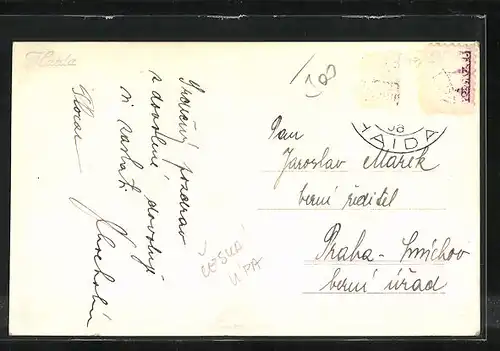 Srdečný pozdrav
z dovolené dovoluji
si zaslati
/100
HAIDA
Pan
Jaroslav Marek
berní ředitel
Praha-Smíchov
berní úřad
ČESKÁ
LÍPA